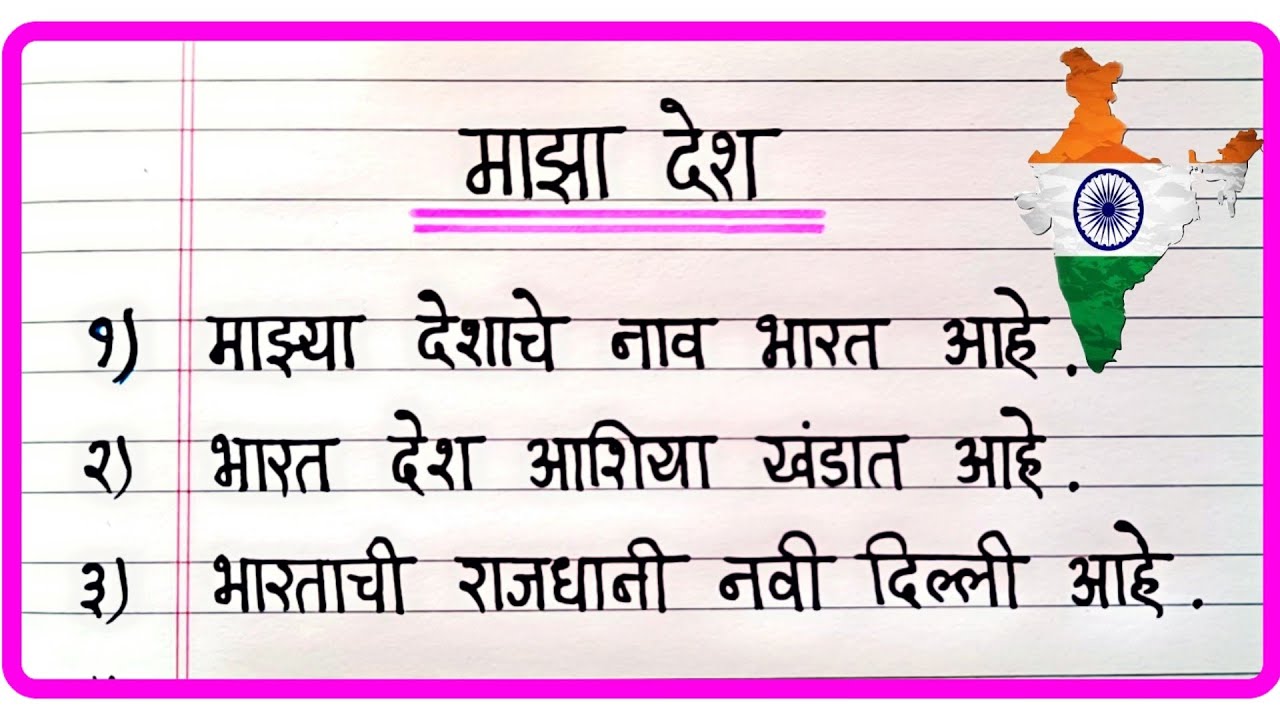 माझा देश
१) माझ्या देशाचे नाव भारत आहे.
२) भारत देश आशिया खंडात आहे.
३) भारताची राजधानी नवी दिल्ली आहे.